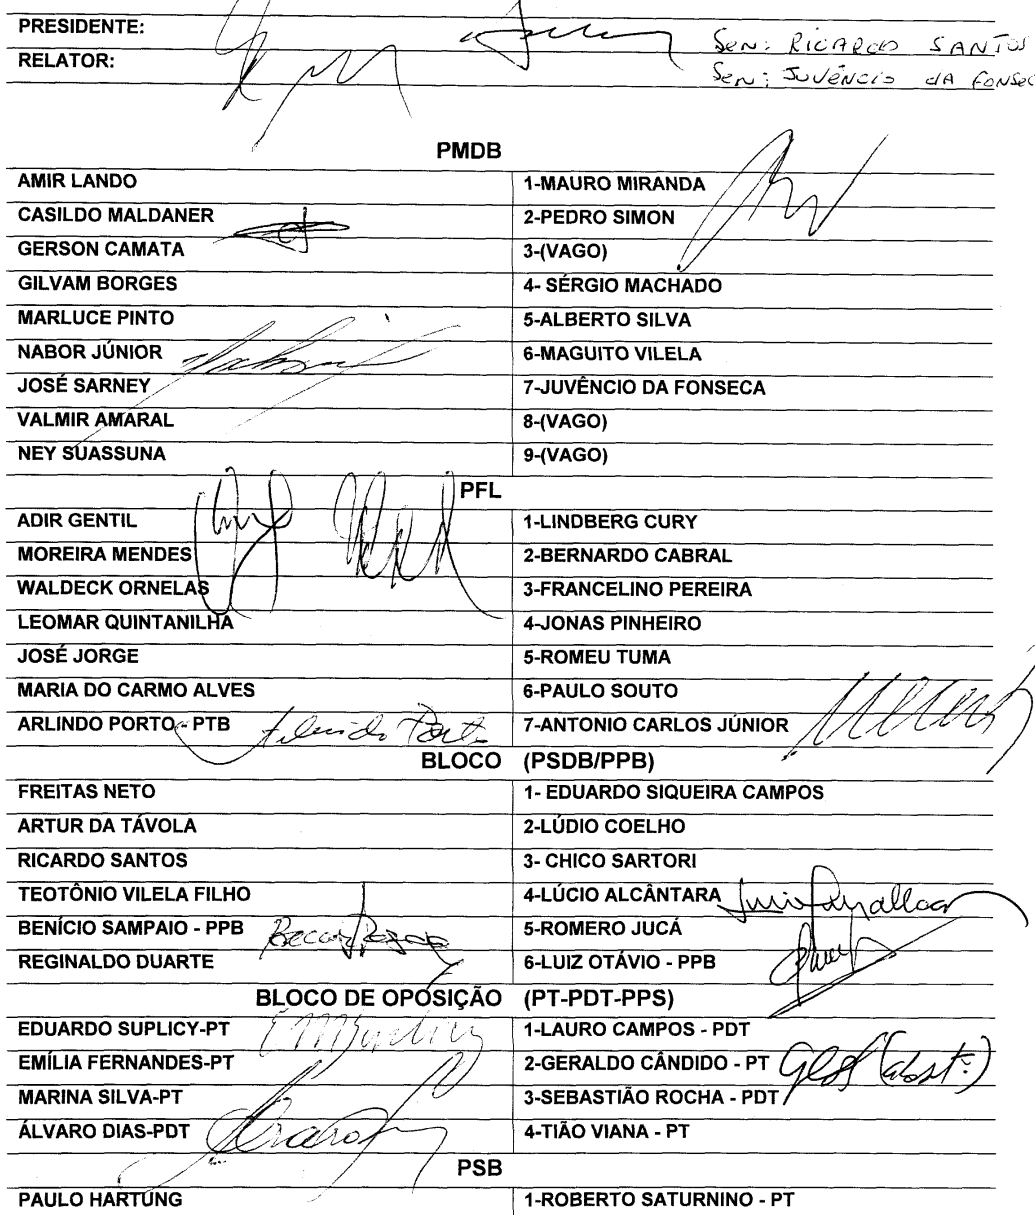 PRESIDENTE: Sen: RICARDO SANTOS
RELATOR: Sen: JUVÊNCIO dA FONSEC
PMDB
AMIR LANDO 1-MAURO MIRANDA
CASILDO MALDANER 2-PEDRO SIMON
GERSON CAMATA 3-(VAGO)
GILVAM BORGES 4- SÉRGIO MACHADO
MARLUCE PINTO 5-ALBERTO SILVA
NABOR JÚNIOR 6-MAGUITO VILELA
JOSÉ SARNEY 7-JUVÊNCIO DA FONSECA
VALMIR AMARAL 8-(VAGO)
NEY SUASSUNA 9-(VAGO)
PFL
ADIR GENTIL 1-LINDBERG CURY
MOREIRA MENDES 2-BERNARDO CABRAL
WALDECK ORNELAS 3-FRANCELINO PEREIRA
LEOMAR QUINTANILHA 4-JONAS PINHEIRO
JOSÉ JORGE 5-ROMEU TUMA
MARIA DO CARMO ALVES 6-PAULO SOUTO
ARLINDO PORTO - PTB Arlindo Porto 7-ANTONIO CARLOS JÚNIOR
BLOCO (PSDB/PPB)
FREITAS NETO 1- EDUARDO SIQUEIRA CAMPOS
ARTUR DA TÁVOLA 2-LÚDIO COELHO
RICARDO SANTOS 3- CHICO SARTORI
TEOTÔNIO VILELA FILHO 4-LÚCIO ALCÂNTARA
BENÍCIO SAMPAIO - PPB 5-ROMERO JUCÁ
REGINALDO DUARTE 6-LUIZ OTÁVIO - PPB
BLOCO DE OPOSIÇÃO (PT-PDT-PPS)
EDUARDO SUPLICY-PT 1-LAURO CAMPOS - PDT
EMÍLIA FERNANDES-PT 2-GERALDO CÂNDIDO - PT (abst:)
MARINA SILVA-PT 3-SEBASTIÃO ROCHA - PDT
ÁLVARO DIAS-PDT 4-TIÃO VIANA - PT
PSB
PAULO HARTUNG 1-ROBERTO SATURNINO - PT